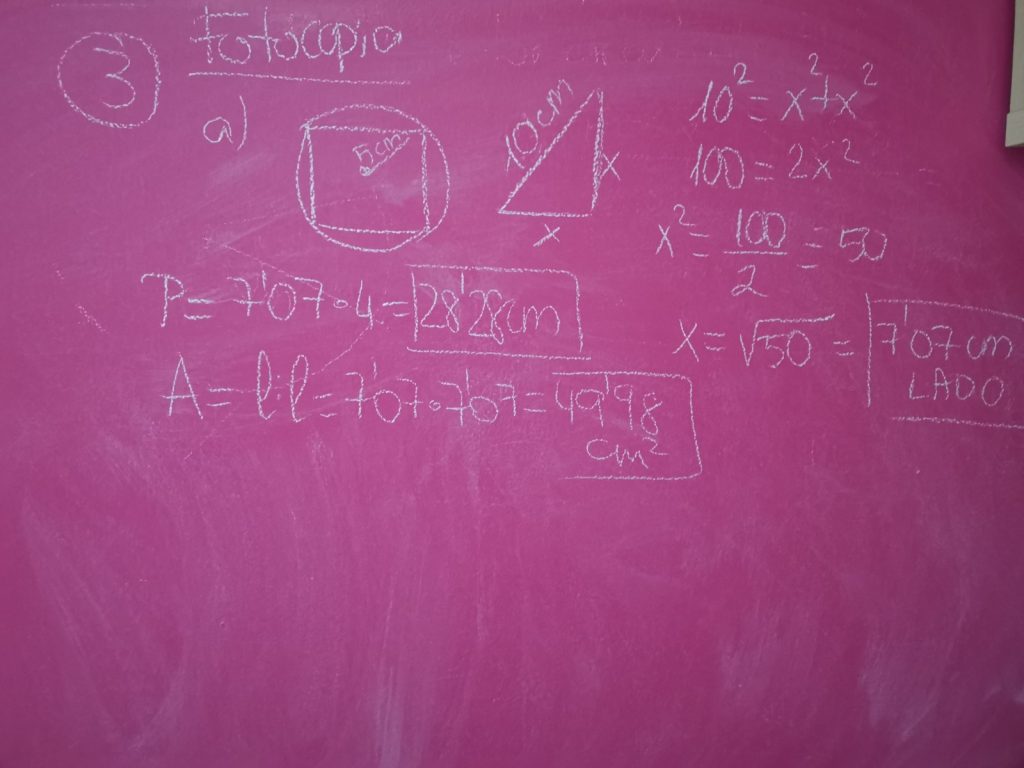 3 Fotocopia
a)
5cm
10cm
x
x
10² = x² + x²
100 = 2x²
x² = 100/2 = 50
x = √50 = 7'07 cm
LADO
P = 7'07 · 4 = 28'28 cm
A = l · l = 7'07 · 7'07 = 49'98
cm²